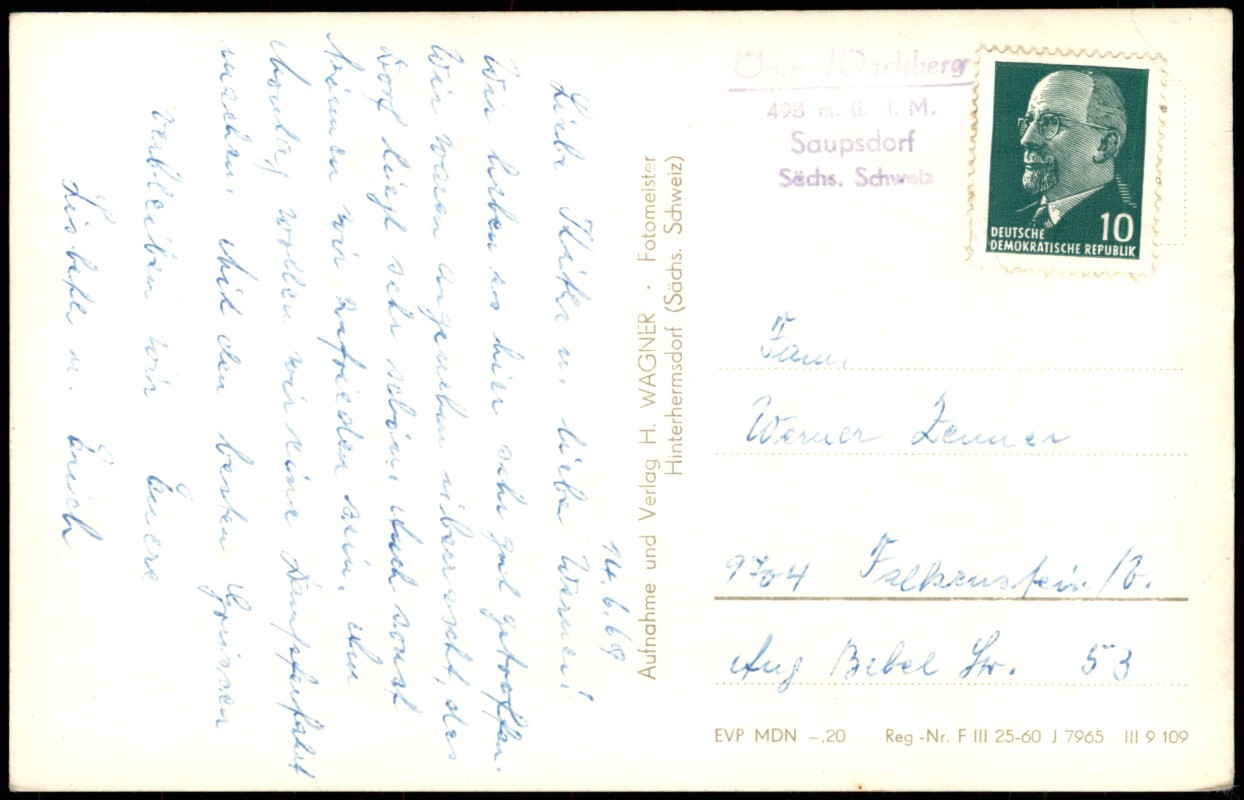 14.6.69
Liebe Käthe u. lieber Werner!
Wir haben es hier sehr gut getroffen.
Wir waren angenehm überrascht, das
Dorf liegt sehr schön. Auch sonst
können wir zufrieden sein. Am
Montag wollen wir eine Dampferfahrt
machen. Mit den besten Grüssen
verbleiben wir Euere
Lisbeth u. Erich
Aufnahme und Verlag H. WAGNER · Fotomeister
Hinterhermsdorf (Sächs. Schweiz)
Vom Wachberg
493 m ü. d. M.
Saupsdorf
Sächs. Schweiz
10
DEUTSCHE
DEMOKRATISCHE REPUBLIK
Fam.
Werner Zenner
9704 Falkenstein/V.
Aug Bebel Str. 53
EVP MDN –,20 Reg.-Nr. F III 25-60 J 7965 III 9 109